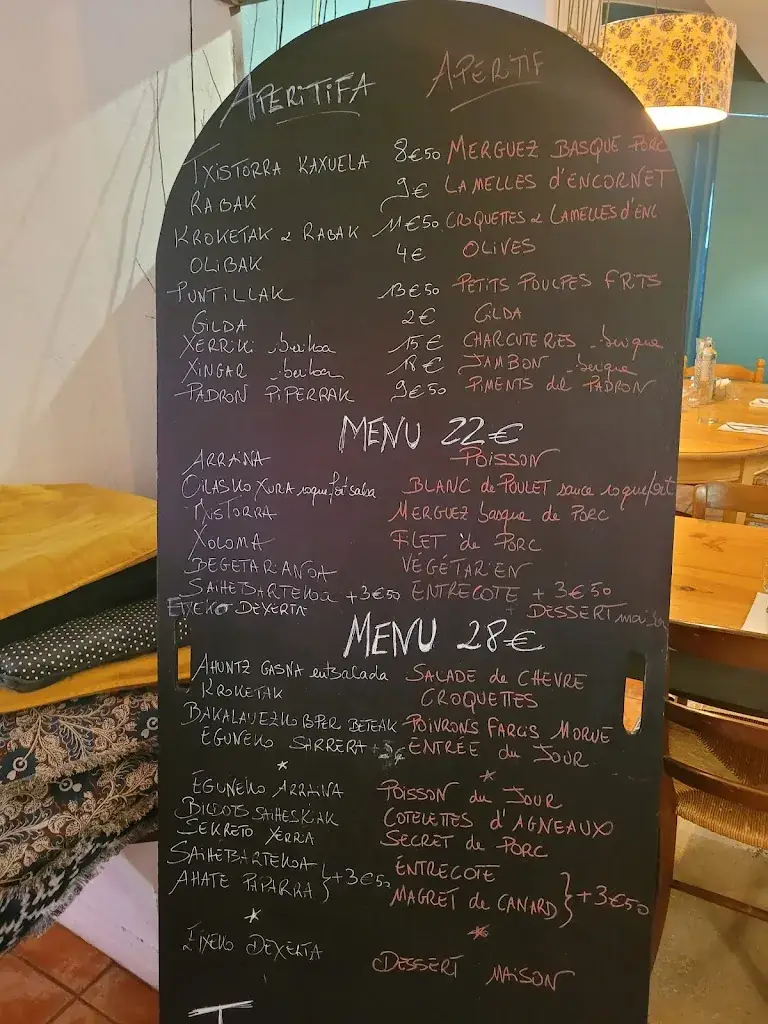 APERITIFA APÉRITIF
TXISTORRA KAXUELA 8€50 MERGUEZ BASQUE PORC
RABAK 9€ LAMELLES d'ENCORNET
KROKETAK & RABAK 11€50 CROQUETTES & LAMELLES d'ENC
OLIBAK 4€ OLIVES
PUNTILLAK 13€50 PETITS POULPES FRITS
GILDA 2€ GILDA
XERRIKI iberikoa 15€ CHARCUTERIES iberique
XINGAR iberikoa 18€ JAMBON iberique
PADRON PIPERRAK 9€50 PIMENTS del PADRON
MENU 22€
ARRAINA POISSON
OILASKO XURA roquefort salsa BLANC de POULET sauce roquefort
TXISTORRA MERGUEZ basque de PORC
XOLOMA FILET de PORC
BEGETARIANOA VÉGÉTARIEN
SAIHETBARTEKOA +3€50 ENTRECOTE + 3€50
ETXEKO DEXERTA + DESSERT maison
MENU 28€
AHUNTZ GASNA entsalada SALADE de CHEVRE
KROKETAK CROQUETTES
BAKALAUEZKO BIPER BETEAK POIVRONS FARCIS MORUE
EGUNEKO SARRERA ENTRÉE du JOUR
*
EGUNEKO ARRAINA POISSON du JOUR
BILDOTS SAIHESKIAK COTELETTES d'AGNEAUX
SEKRETO XERRA SECRET de PORC
SAIHETBARTEKOA ENTRECOTE
AHATE PAPARRA } +3€50 MAGRET de CANARD } +3€50
*
ETXEKO DEXERTA DESSERT MAISON